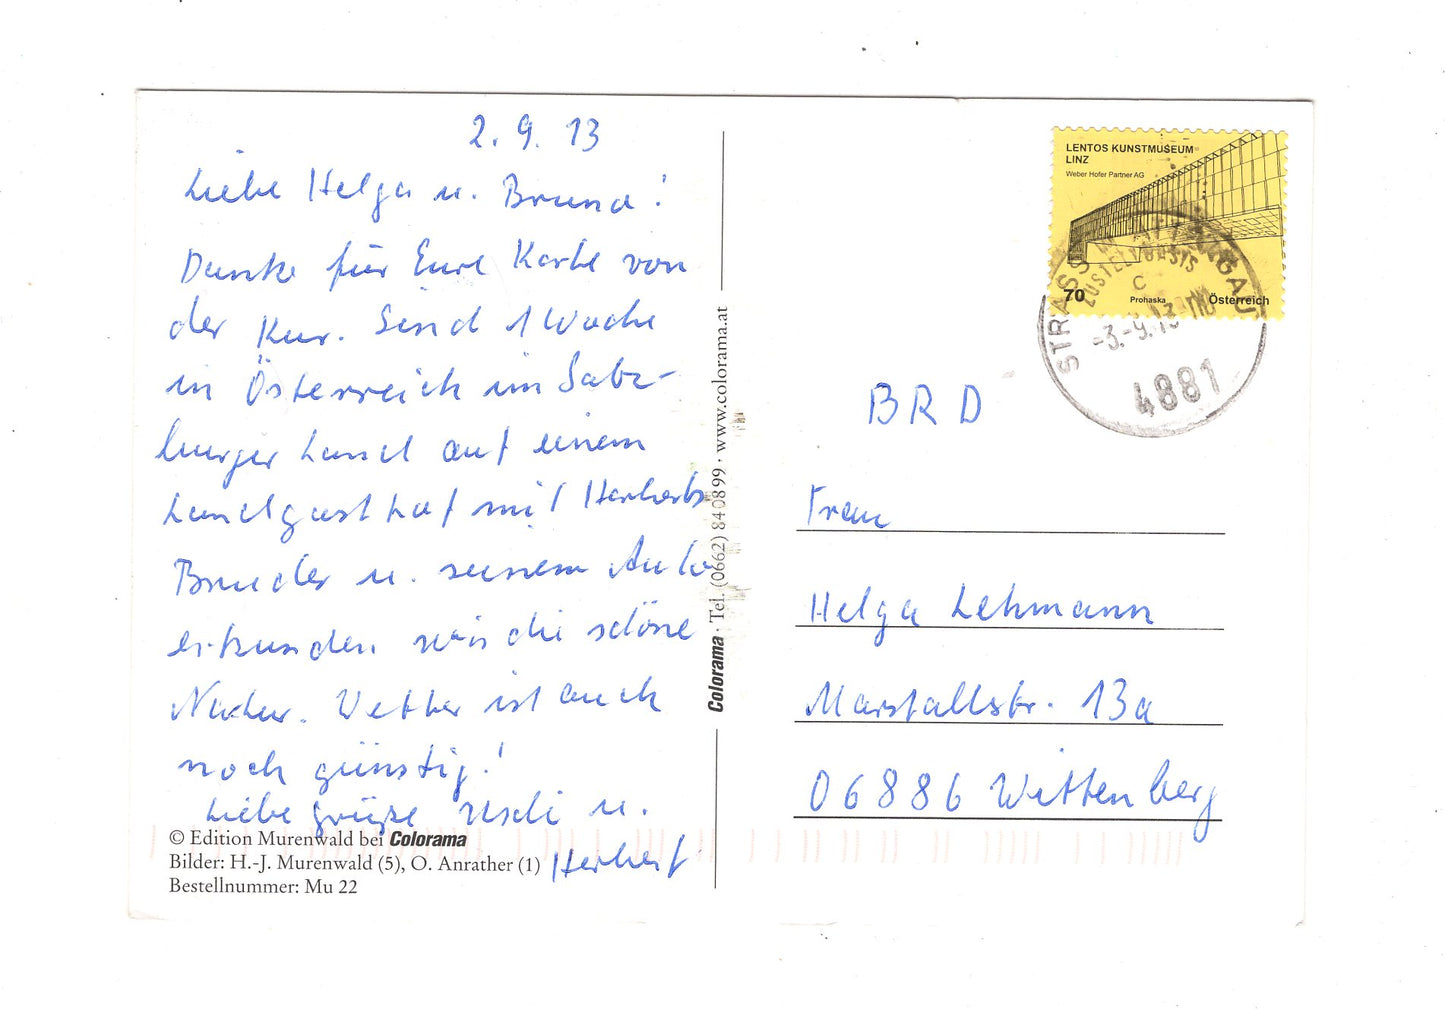 2. 9. 13
Liebe Helga u. Bruno!
Danke für Eure Karte von
der Kur. Sind 1 Woche
in Österreich im Salz-
burger Land auf einem
Landgasthof mit Herberts
Bruder u. seinem Auto
erkunden wir die schöne
Natur. Wetter ist auch
noch günstig!
Liebe Grüße Uschi u.
Herbert
© Edition Murenwald bei Colorama
Bilder: H.-J. Murenwald (5), O. Anrather (1)
Bestellnummer: Mu 22
Colorama · Tel. (0662) 840899 · www.colorama.at
LENTOS KUNSTMUSEUM
LINZ
Weber Hofer Partner AG
70
Prohaska
Österreich
ZUSTELLBASIS
C
-3.-9.13
4881
BRD
Frau
Helga Lehmann
Marstallstr. 13a
06886 Wittenberg